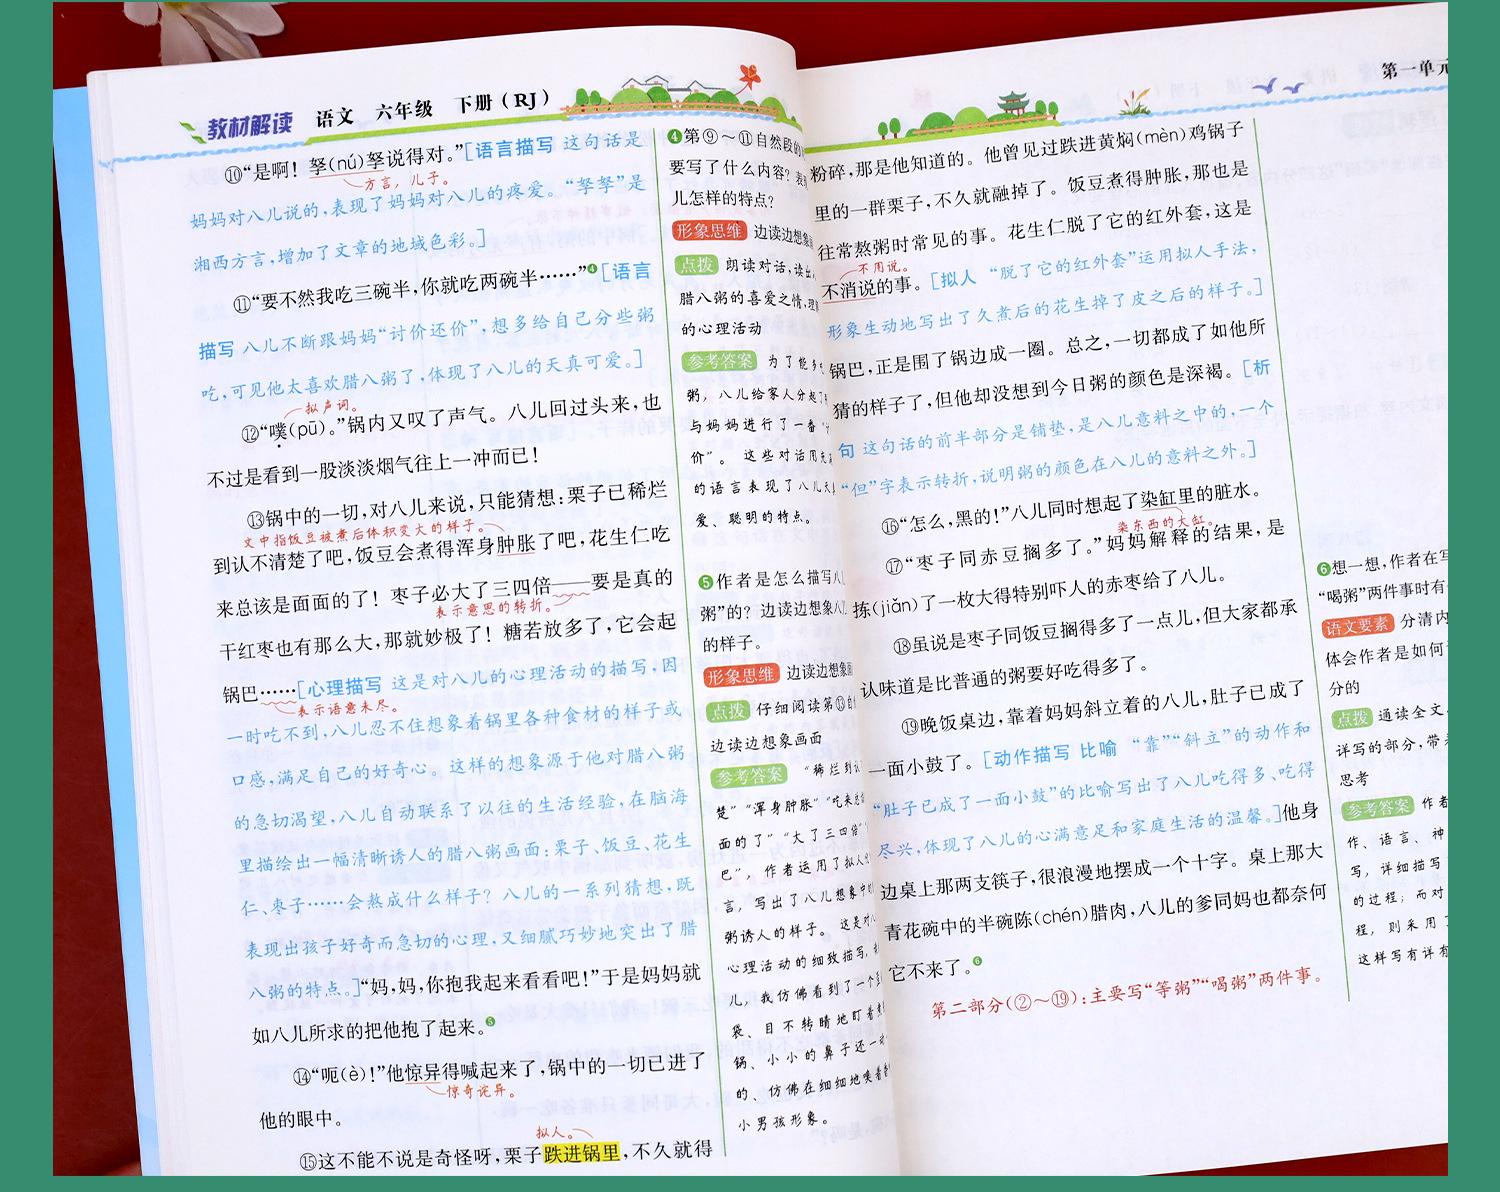 教材解读 语文 六年级 下册（RJ）
⑩“是啊！孥(nú)孥说得对。”[语言描写 这句话是
方言，儿子。
妈妈对八儿说的，表现了妈妈对八儿的疼爱。“孥孥”是
湘西方言，增加了文章的地域色彩。]
⑪“要不然我吃三碗半，你就吃两碗半……”❹[语言
描写 八儿不断跟妈妈“讨价还价”，想多给自己分些粥
吃，可见他太喜欢腊八粥了，体现了八儿的天真可爱。]
拟声词。
⑫“噗(pū)。”锅内又叹了声气。八儿回过头来，也
不过是看到一股淡淡烟气往上一冲而已！
⑬锅中的一切，对八儿来说，只能猜想：栗子已稀烂
文中指饭豆被煮后体积变大的样子。
到认不清楚了吧，饭豆会煮得浑身肿胀了吧，花生仁吃
来总该是面面的了！枣子必大了三四倍——要是真的
表示意思的转折。
干红枣也有那么大，那就妙极了！糖若放多了，它会起
锅巴……[心理描写 这是对八儿的心理活动的描写，因
表示语意未尽。
一时吃不到，八儿忍不住想象着锅里各种食材的样子或
口感，满足自己的好奇心。这样的想象源于他对腊八粥
的急切渴望，八儿自动联系了以往的生活经验，在脑海
里描绘出一幅清晰诱人的腊八粥画面：栗子、饭豆、花生
仁、枣子……会熬成什么样子？八儿的一系列猜想，既
表现出孩子好奇而急切的心理，又细腻巧妙地突出了腊
八粥的特点。]“妈，妈，你抱我起来看看吧！”于是妈妈就
如八儿所求的把他抱了起来。❺
⑭“呃(è)！”他惊异得喊起来了，锅中的一切已进了
惊奇诧异。
他的眼中。
拟人。
⑮这不能不说是奇怪呀，栗子跌进锅里，不久就得
❹第⑨～⑪自然段的
要写了什么内容？表
儿怎样的特点？
形象思维 边读边想象
点拨 朗读对话，读出
腊八粥的喜爱之情，理
的心理活动
参考答案 为了能多
粥，八儿给家人分起了
与妈妈进行了一番“
价”。这些对话用
的语言表现了八儿天
爱、聪明的特点。
❺作者是怎么描写八
粥”的？边读边想象八
的样子。
形象思维 边读边想象画
点拨 仔细阅读第⑬自
边读边想象画面
参考答案 “稀烂到认
楚”“浑身肿胀”“吃来总
面的了”“大了三四倍”
巴”，作者运用了拟人
言，写出了八儿想象中
粥诱人的样子。这是对
心理活动的细致描写，
儿，我仿佛看到了一个
袋、目不转睛地盯着
锅、小小的鼻子还一
的、仿佛在细细地嗅着
小男孩形象。
第一单元
粉碎，那是他知道的。他曾见过跌进黄焖(mèn)鸡锅子
里的一群栗子，不久就融掉了。饭豆煮得肿胀，那也是
往常熬粥时常见的事。花生仁脱了它的红外套，这是
不用说。
不消说的事。[拟人 “脱了它的红外套”运用拟人手法，
形象生动地写出了久煮后的花生掉了皮之后的样子。]
锅巴，正是围了锅边成一圈。总之，一切都成了如他所
猜的样子了，但他却没想到今日粥的颜色是深褐。[析
句 这句话的前半部分是铺垫，是八儿意料之中的，一个
“但”字表示转折，说明粥的颜色在八儿的意料之外。]
⑯“怎么，黑的！”八儿同时想起了染缸里的脏水。
染东西的大缸。
⑰“枣子同赤豆搁多了。”妈妈解释的结果，是
拣(jiǎn)了一枚大得特别吓人的赤枣给了八儿。
⑱虽说是枣子同饭豆搁得多了一点儿，但大家都承
认味道是比普通的粥要好吃得多了。
⑲晚饭桌边，靠着妈妈斜立着的八儿，肚子已成了
一面小鼓了。[动作描写 比喻 “靠”“斜立”的动作和
“肚子已成了一面小鼓”的比喻写出了八儿吃得多、吃得
尽兴，体现了八儿的心满意足和家庭生活的温馨。]他身
边桌上那两支筷子，很浪漫地摆成一个十字。桌上那大
青花碗中的半碗陈(chén)腊肉，八儿的爹同妈也都奈何
它不来了。❻
第二部分（②～⑲）：主要写“等粥”“喝粥”两件事。
❻想一想，作者在写
“喝粥”两件事时有
语文要素 分清内
体会作者是如何
分的
点拨 通读全文，
详写的部分，带
思考
参考答案 作者
作、语言、神
写，详细描写
的过程；而对
程，则采用了
这样写有详有